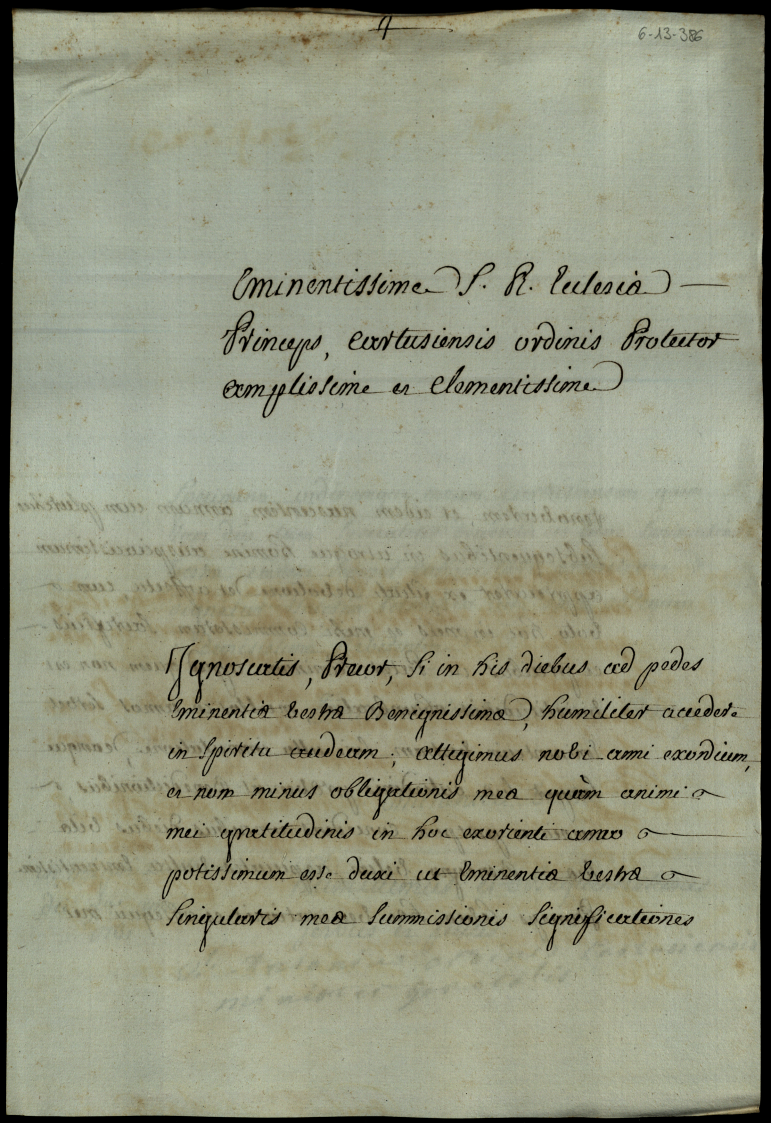 6-13-386
Eminentissime S. R. Eclesiæ
Princeps, Cartusiensis ordinis Protector
amplissime et Clementissime
Ignoscatis, Precor, si in his diebus ad pedes
Eminentiæ Vestræ Benignissimæ, humiliter accedere
in Spiritu audeam; attigimus nobi anni exordium,
et non minus obligationis meæ quàm animi
mei gratitudinis in hoc exorienti anno
potissimum esse duxi ut Eminentiæ Vestræ
Singularis meæ Summissionis Significationes